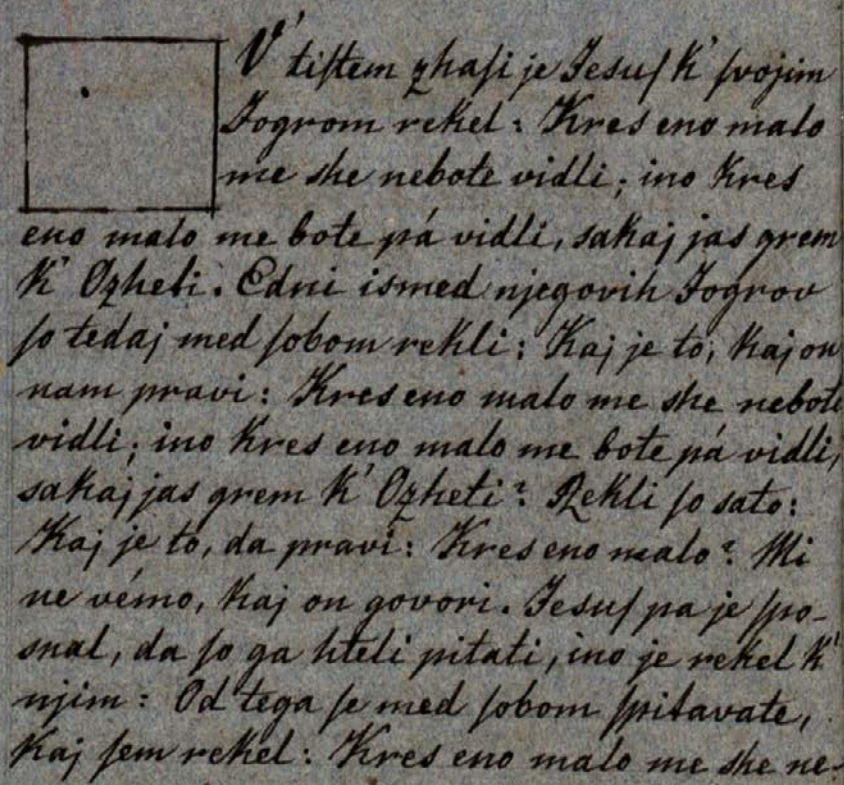 V' tiſtem zhaſi je Jesuſ k' ſvojim
Jogrom rekel: Kres eno malo
me she nebote vidli; ino kres
eno malo me bote pá vidli, sakaj jas grem
k' Ozheti. Edni ismed njegovih Jogrov
ſo tedaj med ſobom rekli: Kaj je to, kaj on
nam pravi: Kres eno malo me she nebote
vidli; ino kres eno malo me bote pá vidli,
sakaj jas grem k' Ozheti? Rekli ſo sato:
Kaj je to, da pravi: Kres eno malo? Mi
ne vémo, kaj on govori. Jesuſ pa je ſpo-
snal, da ſo ga hteli pitati, ino je rekel k'
njim: Od tega ſe med ſobom ſpitavate,
kaj ſem rekel: Kres eno malo me she ne-